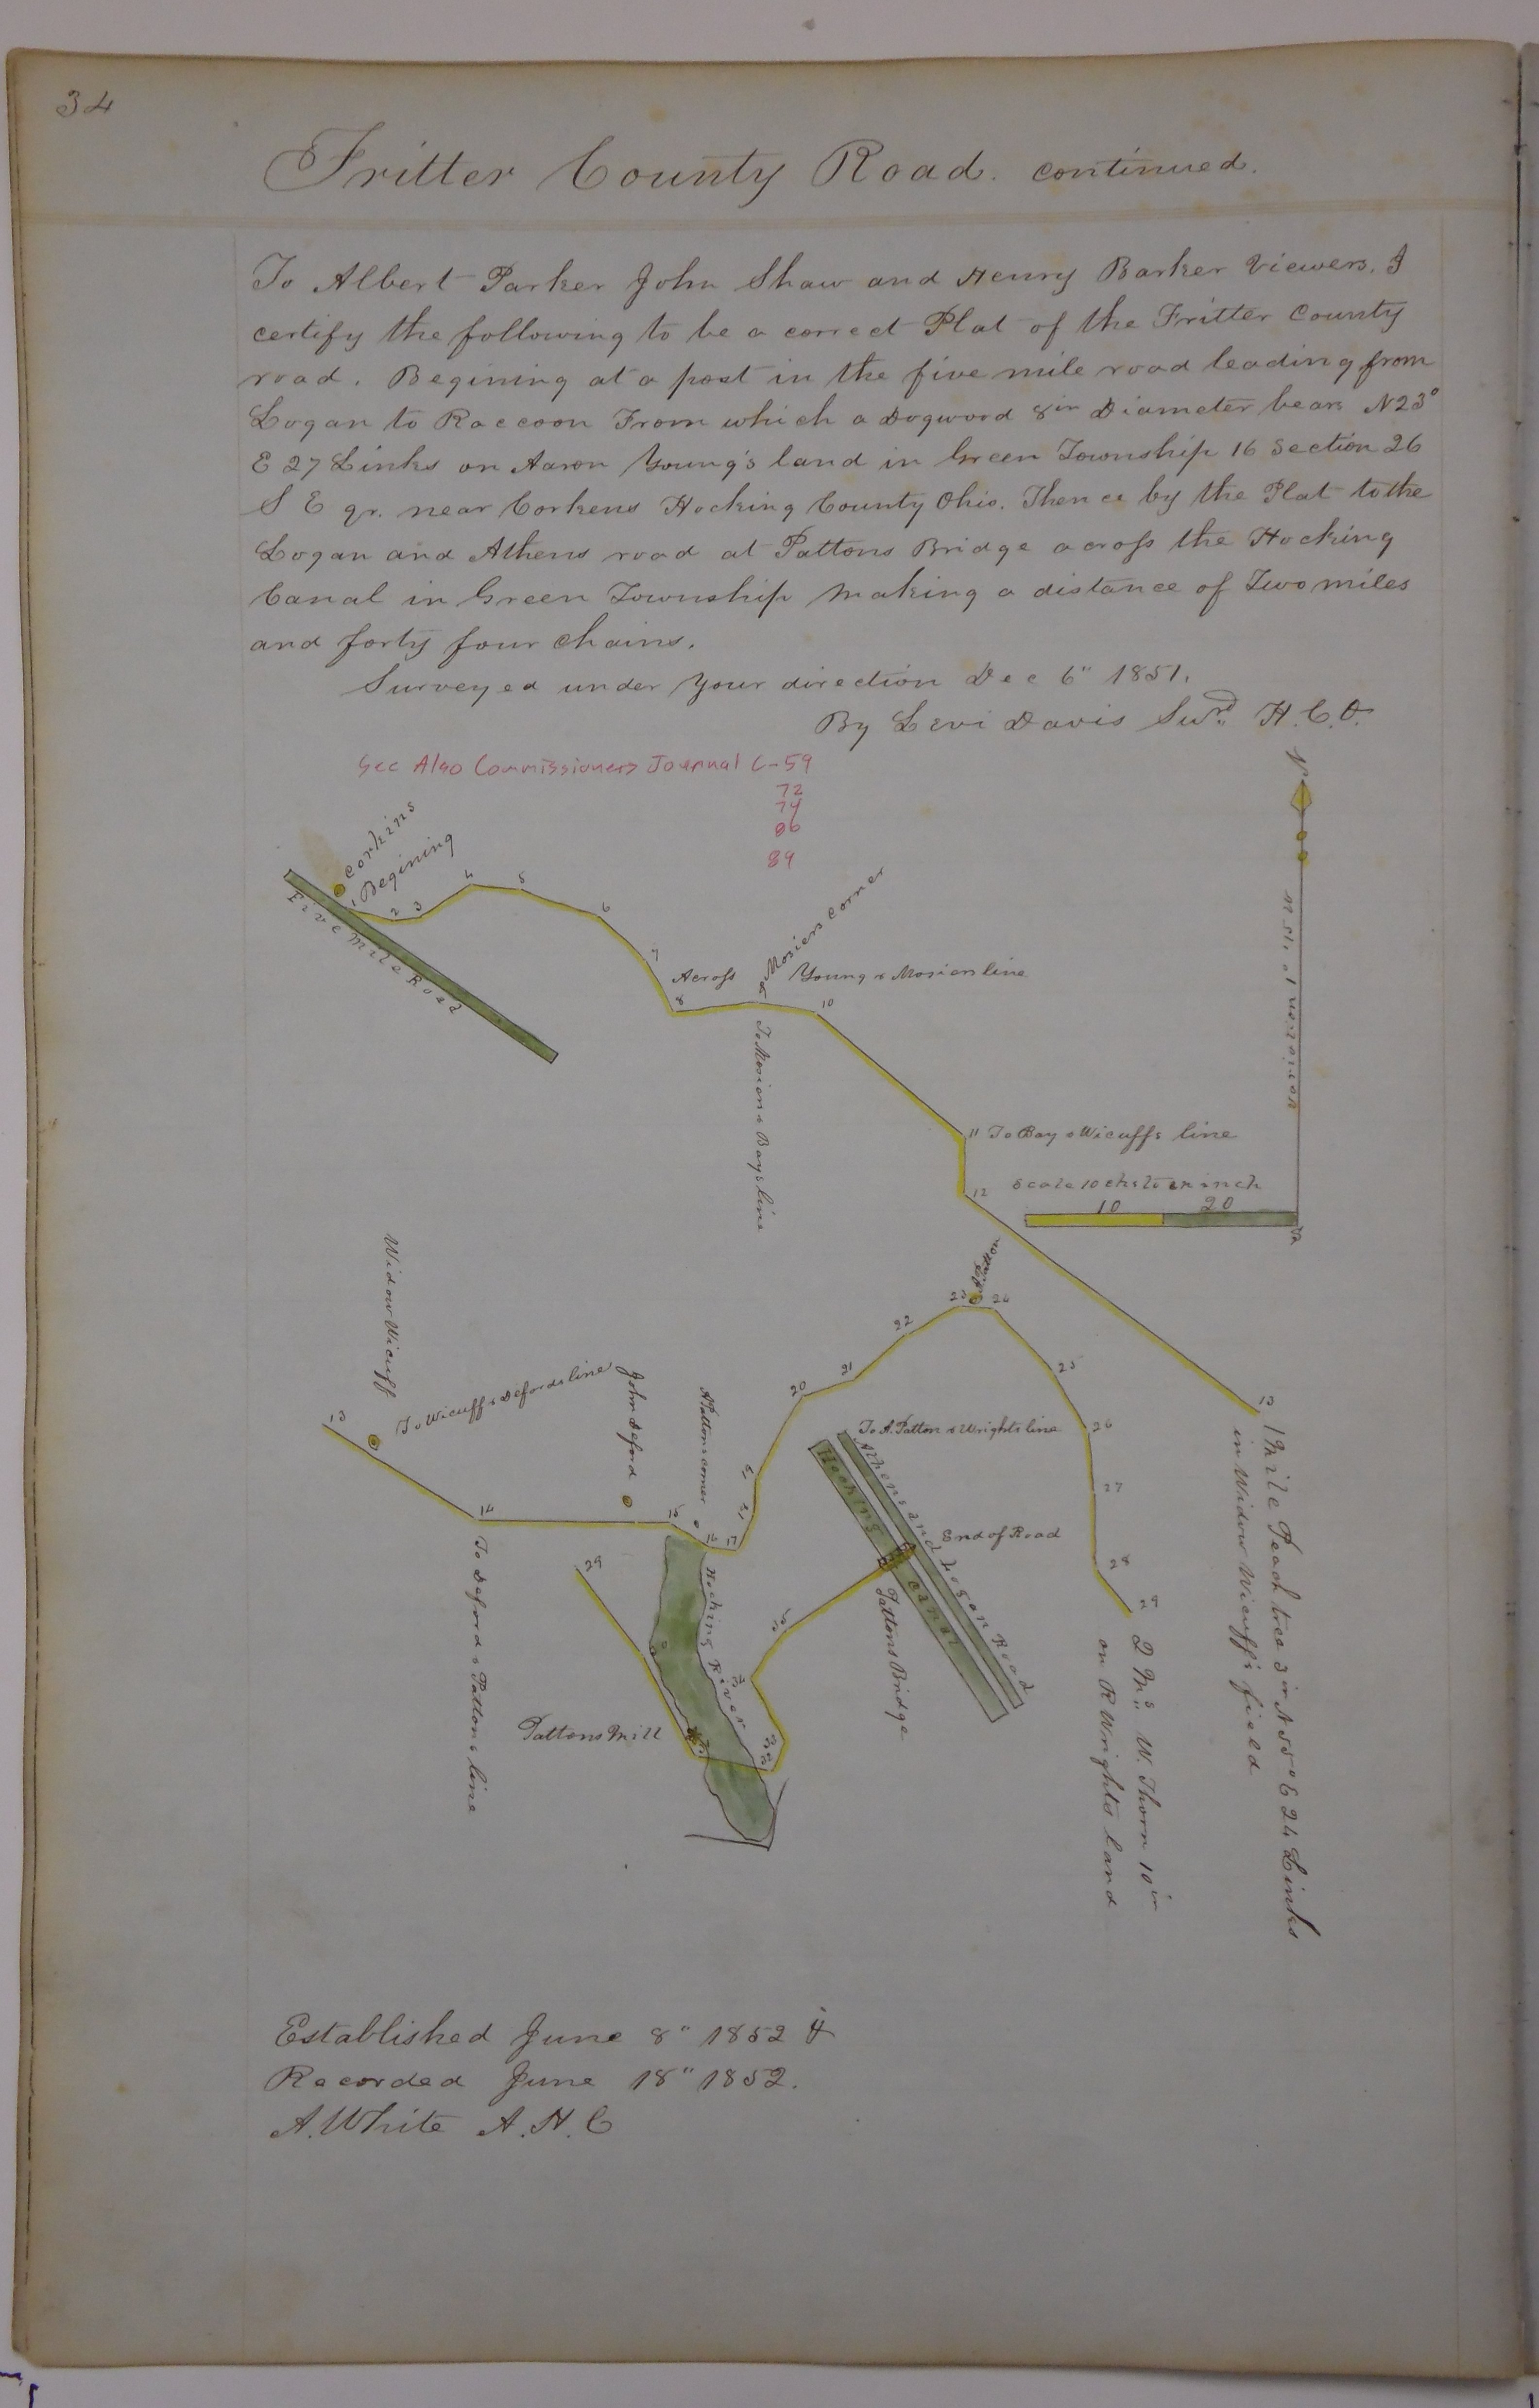 34
Fritter County Road. continued.
To Albert Parker John Shaw and Henry Barker Viewers. I
certify the following to be a correct Plat of the Fritter County
road. Begining at a post in the five mile road leading from
Logan to Raccoon From which a Dogwood 8in Diameter bears N23°
E 27 Links on Aaron Young's land in Green Township 16 Section 26
S E qr. near Corkens Hocking County Ohio. Thence by the Plat to the
Logan and Athens road at Pattons Bridge across the Hocking
Canal in Green Township Making a distance of Two miles
and forty four chains.
Surveyed under Your direction Dec 6" 1851.
By Levi Davis Surr. H.C.O.
See Also Commissioners Journal C-59
72
74
86
89
N
Corkins
1 Begining
Five Mile Road
2
3
4
5
6
7
8
Across
Mosiers Corner
Young & Mosiers line
10
To Mosiers & Bays line
11 To Bay & Wicuffs line
12
Scale 10 chs to an inch
10 20
13
1 Mile Peach tree 3 in N55° E 24 Links
in Widow Wicuff's field
13
Widow Wicuff
To Wicuff & Defords line
14
To Deford & Pattons line
John Deford
15
A Pattons corner
16
17
20
21
22
23
24
25
26
27
28
29
2 Ms W. Thorn 10 in
on R Wrights land
To A. Patton & Wrights line
Athens and Logan Road
Hocking Canal
End of Road
Pattons Bridge
29
Hocking River
Pattons Mill
Established June 8" 1852 &
Recorded June 18" 1852.
A. White A.H.C